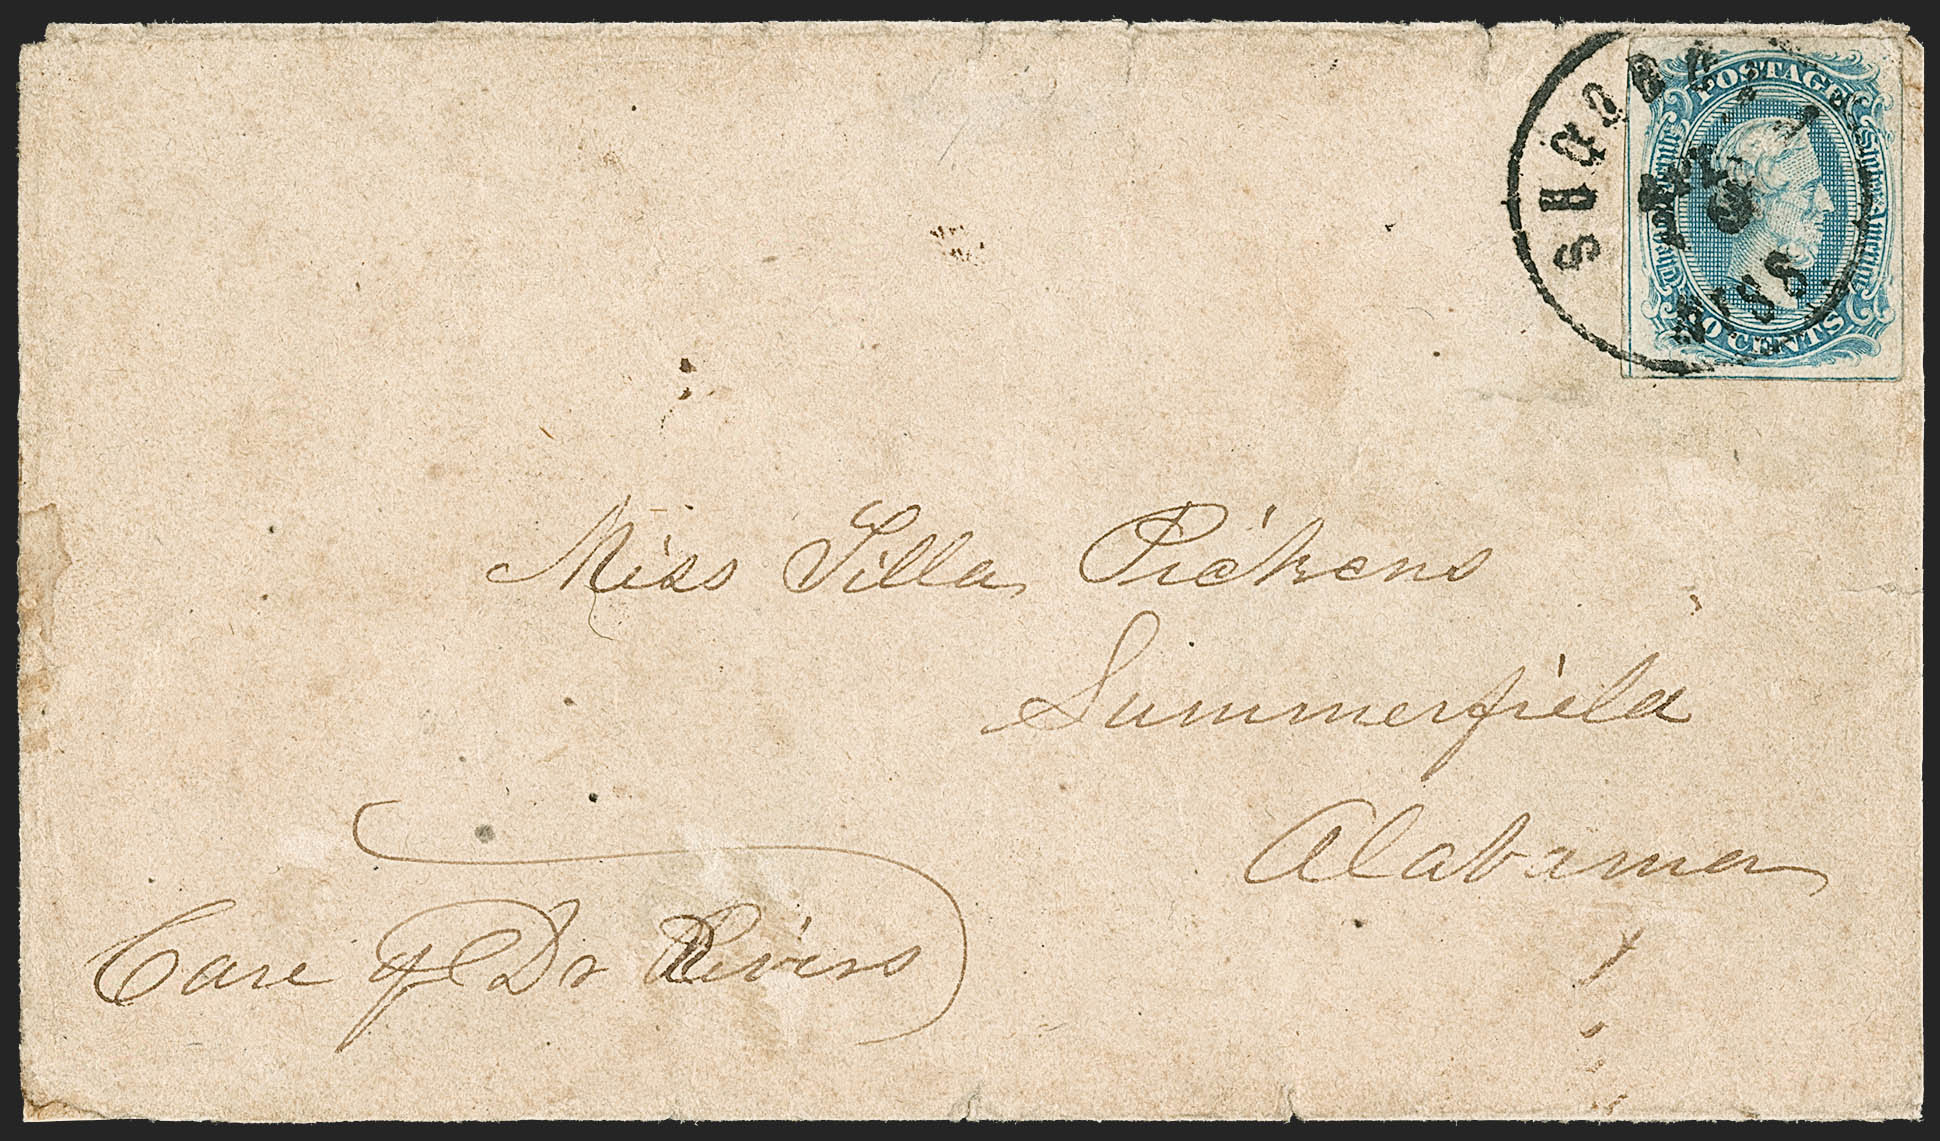 POSTAGE
CENTS
MISS
Miss Silla Pickens
Summerfield
Alabama
Care of Dr Rivers